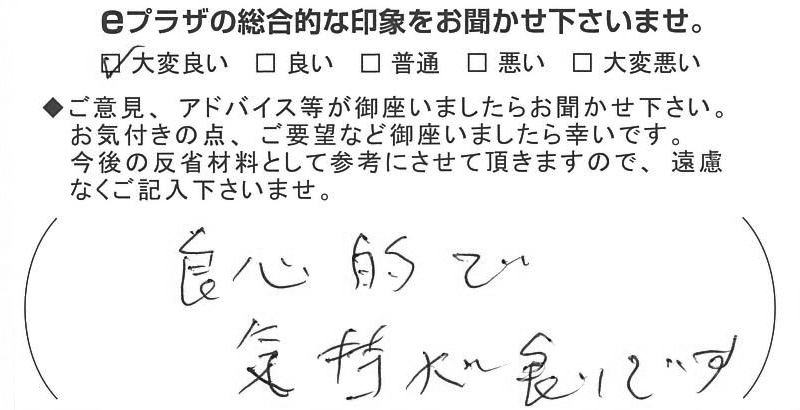 eプラザの総合的な印象をお聞かせ下さいませ。
☑ 大変良い □ 良い □ 普通 □ 悪い □ 大変悪い
◆ご意見、アドバイス等が御座いましたらお聞かせ下さい。
お気付きの点、ご要望など御座いましたら幸いです。
今後の反省材料として参考にさせて頂きますので、遠慮
なくご記入下さいませ。
良心的で
気持が良いです